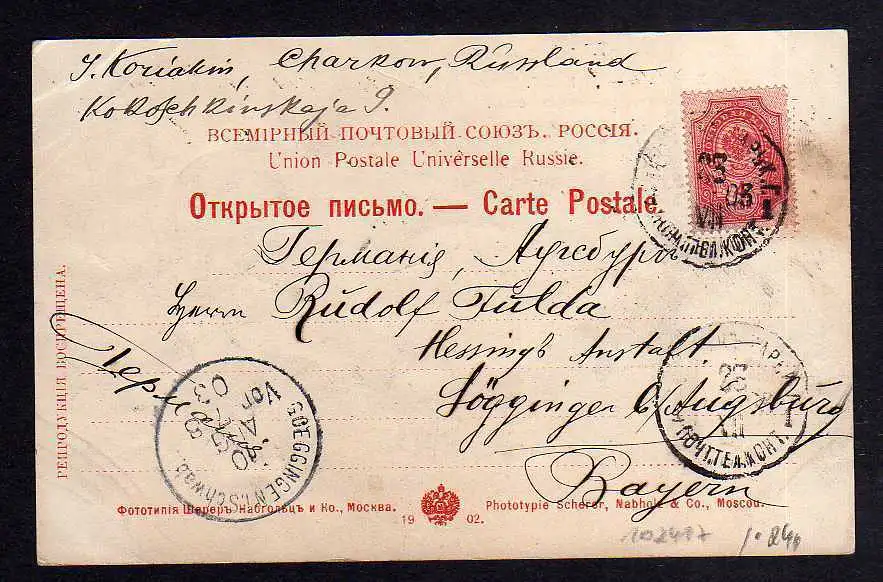 J. Koriakin, Charkow, Russland
Kokoschkinskaja 9.
ВСЕМІРНЫЙ ПОЧТОВЫЙ СОЮЗЪ. РОССІЯ.
Union Postale Universelle Russie.
Открытое письмо. — Carte Postale.
Германія, Аугсбургъ
Herrn Rudolf Fulda
Hessing's Anstalt.
Göggingen b/Augsburg
Bayern
Германія
РЕПРОДУКЦІЯ ВОСПРЕЩЕНА.
GOEGGINGEN i. Schwab.
Vor
03
Фототипія Шереръ Набгольцъ и Ко., Москва.
19 02.
Phototypie Scherer, Nabholz & Co., Moscou.
102497